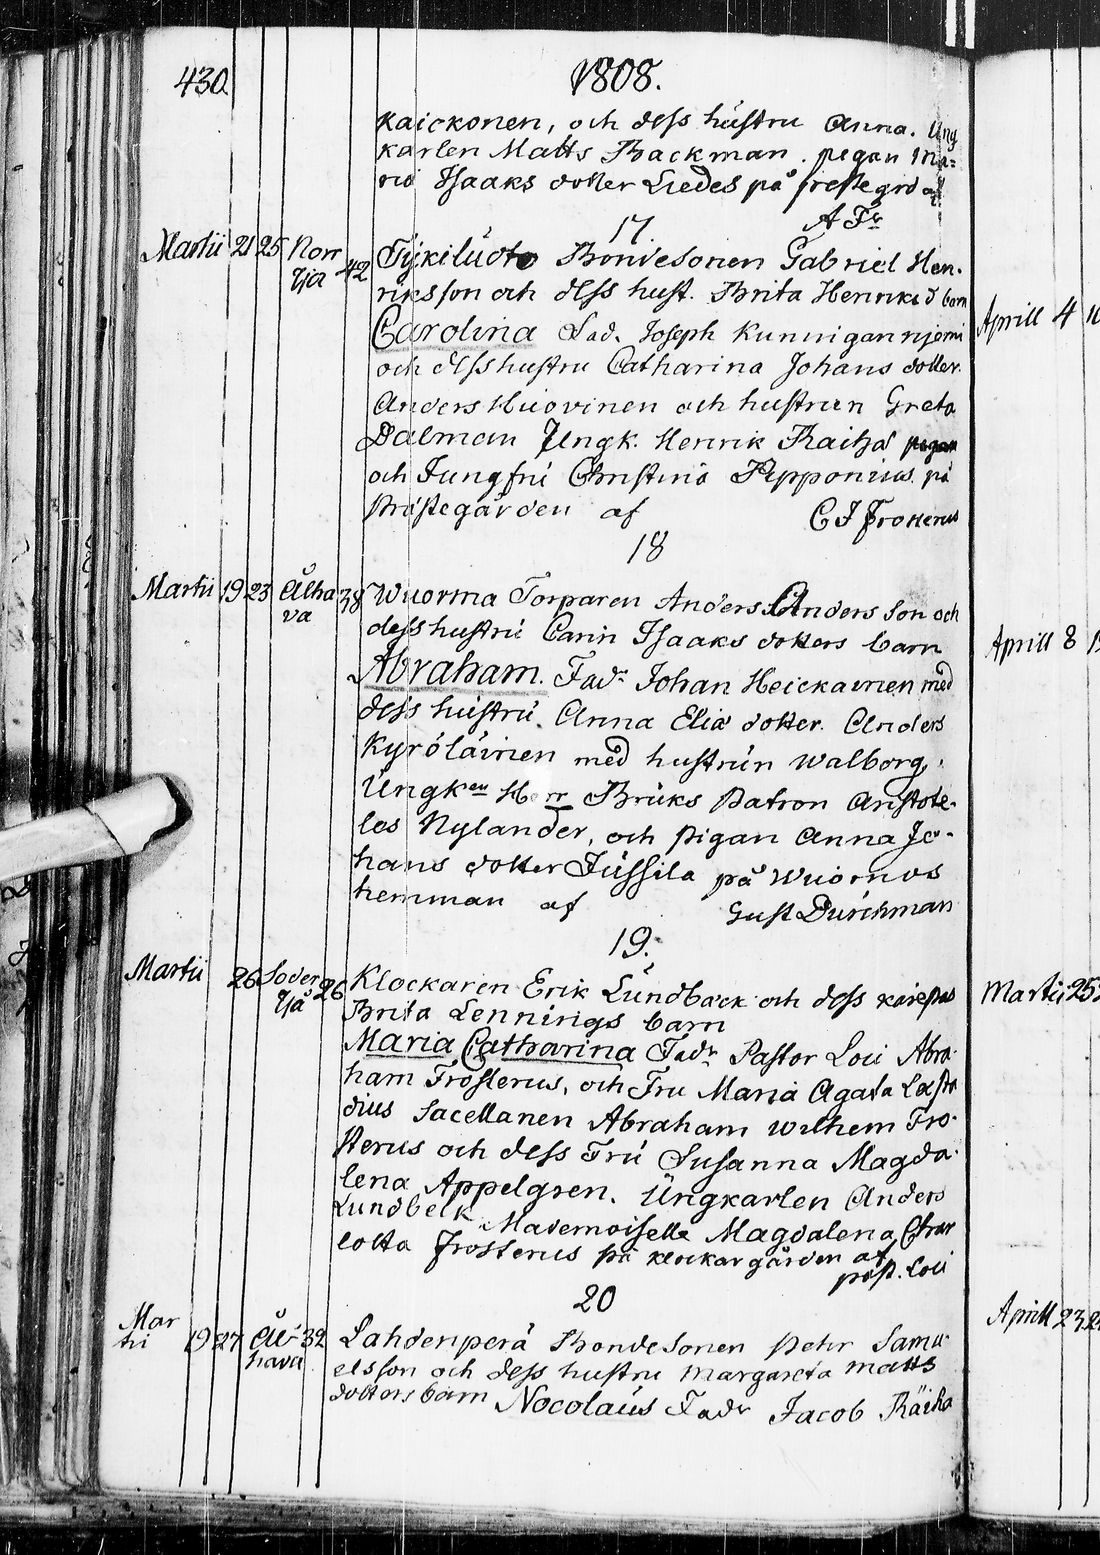 430
1808.
Kaickonen, och dess hustru Anna. Ung
karlen Matts Backman. pigan Ma=
ria Isaaks dotter Liedes på prestegrd af
A Fr
17.
Martii 21 25 Norr 42 Tykiludto Bondesonen Gabriel Hen-
Yja riksson och dess hust. Brita Henriks d barn
Carolina Fad. Joseph Kunnigannjemi
och dess hustru Catharina Johans dotter.
Anders Huovinen och hustrun Greta
Dalman Jungk. Henrik Raiha
och Jungfru Christina Pipponius på
Prästegården af C J Frosterus
18
Martii 19 23 Ålha 38 Wuorma Torparen Anders Anders son och
va dess hustru Carin Isaaks dotters barn
Abraham. Fadr Johan Heickainen med
dess hustru Anna Elia dotter. Anders
Kyröläinen med hustrun Walborg,
Ungken Herr Bruks Patron Aristote-
les Nylander, och pigan Anna Jo-
hans dotter Jussila på Wuornos
hemman af Gust Durchman
19.
Martii 26 Soder 26 Klockaren Erik Lundback och dess käresta
Yjå Brita Lennings barn
Maria Catharina Fadr Pastor Loci Abra-
ham Frosterus, och Fru Maria Agata Lasta
dius Sacellanen Abraham Wilhem Fro-
sterus och dess Fru Susanna Magda-
lena Appelgren. Ungkarlen Anders
Lundbeck Mademoiselle Magdalena Char
lotta Frosterus på klockargården af
past. Loci
20
Mar 19 27 Ål 32 Lahdenperä Bondesonen Pehr Samu-
tii hava elsson och dess hustru Margareta Matts
dotters barn Nocolaus Fadr Jacob Räiha
Aprill 4
Aprill 8
Martii 25
Aprill 23